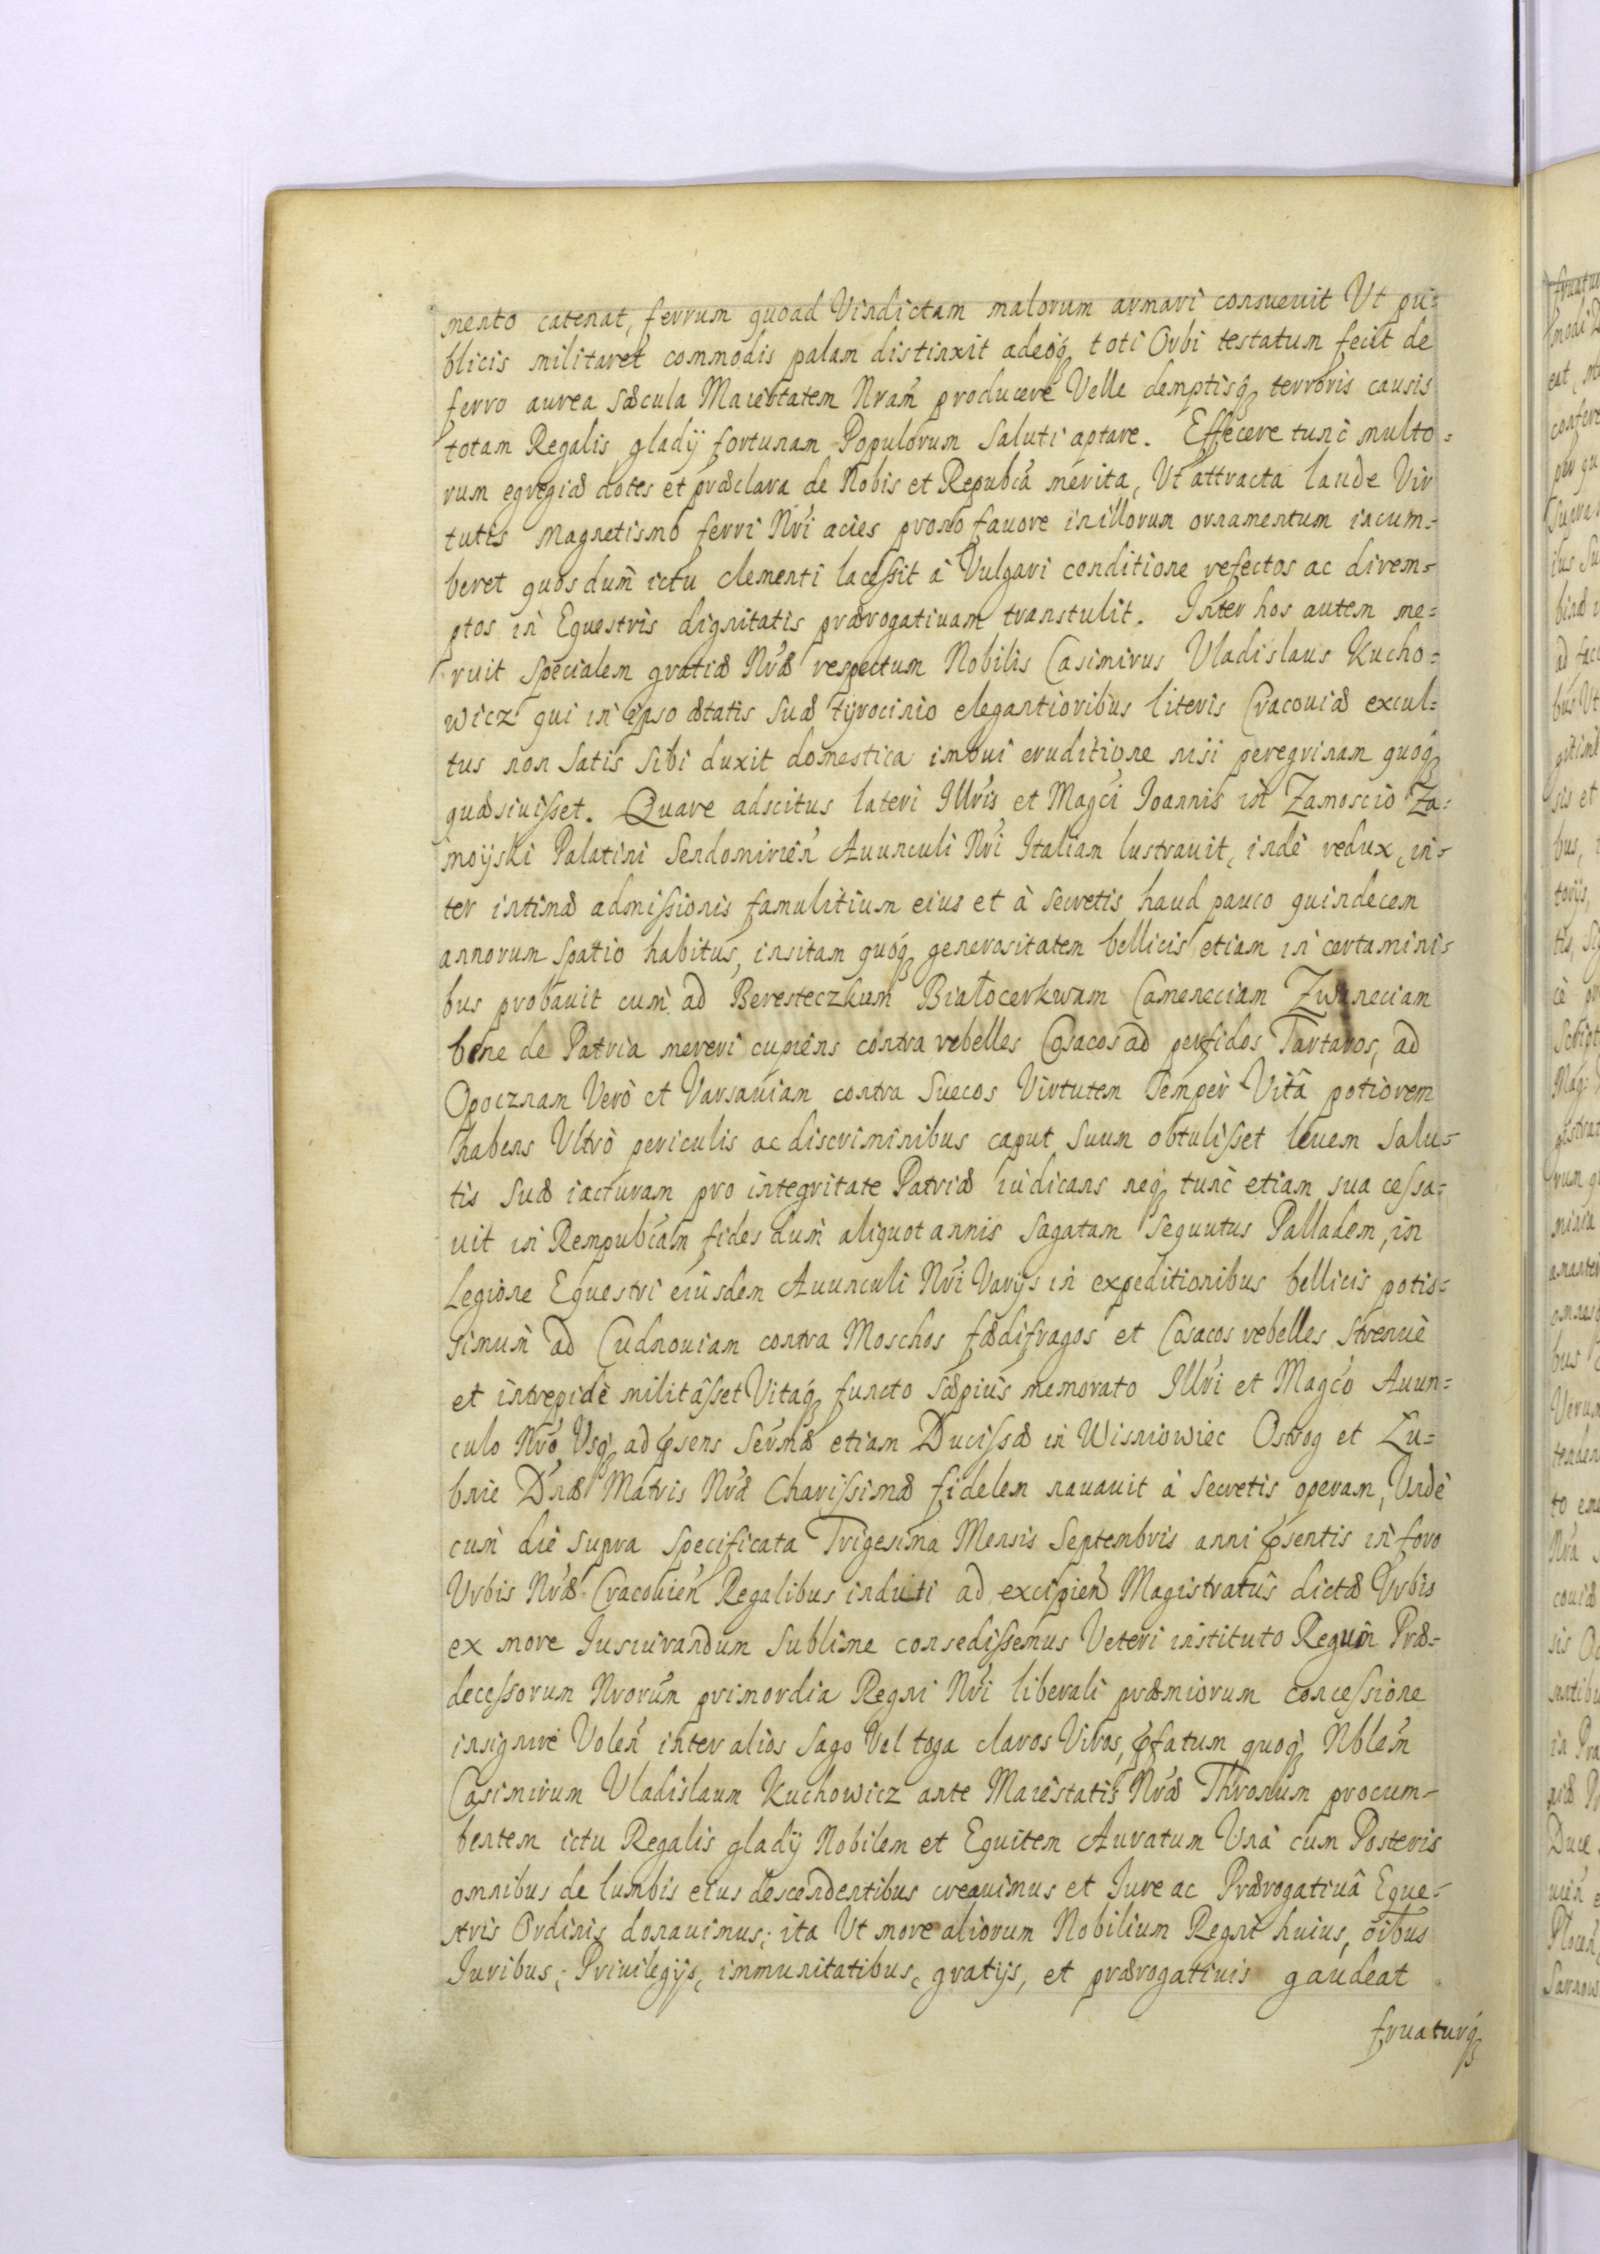 mento catenat, ferrum quoad Vindictam malorum armari consuevit Ut pu=
blicis militaret commodis palam distinxit adeoq; toti Orbi testatum fecit de
ferro aurea sæcula Maiestatem Nram̃ producere Velle demptisq; terroris causis
totam Regalis gladÿ fortunam Populorum Saluti aptare. Effecere tunc multo=
rum egregiæ dotes et præclara de Nobis et Repubca merita, Ut attracta laude Vir
tutis Magnetismo ferri Nri acies prono favore in illorum ornamentum incum=
beret quos dum ictu clementi lacessit à Vulgari conditione refectos ac direm=
ptos in Equestris dignitatis prærogativam transtulit. Inter hos autem me=
ruit specialem gratiæ Nræ respectum Nobilis Casimirus Vladislaus Kucho=
wicz qui in ipso ætatis suæ tÿrocinio elegantioribus literis Cracouiæ excul=
tus non satis sibi duxit domestica imbui eruditione nisi peregrinam quoq;
quæsiuisset. Quare adscitus lateri Illris et Magci Joannis in Zamoscio Za=
moÿski Palatini Sendomirien̄ Auunculi Nri Italiam lustrauit, indè redux, in=
ter intimæ admissionis famulitium eius et à secretis haud pauco quindecem
annorum spatio habitus, insitam quoq; generositatem bellicis etiam in certamini=
bus probauit cum ad Beresteczkum Białocerkwam Cameneciam Zwaneciam
bene de Patria mereri cupiens contra rebelles Cosacos ad perfidos Tartaros, ad
Opocznam Verò et Varsauiam contra Suecos Virtutem Semper Vitâ potiorem
habens Ultrò periculis ac discriminibus caput suum obtulisset leuem salu=
tis suæ iacturam pro integritate Patriæ iudicans neq; tunc etiam sua cessa=
uit in Rempubcam fides dum aliquot annis sagatam sequutus Palladem, in
Legione Equestri eiusdem Auunculi Nri Varÿs in expeditionibus bellicis potis=
simum ad Cudnouiam contra Moschos fædifragos et Cosacos rebelles strenuè
et intrepidè militâsset Vitaq; functo sæpius memorato Illri et Magco Auun=
culo Nro, Usq; ad psens Sermæ etiam Ducissæ in Wisniowiec Ostrog et Zu=
brie Dnæ Matris Nræ Charissimæ fidelem nauauit à secretis operam, Undè
cum die supra specificata Trigesima Mensis Septembris anni psentis in foro
Urbis Nræ Cracouien̄ Regalibus induti ad excipien̄ Magistratûs dictæ Urbis
ex more Iusiurandum sublime consedissemus Veteri instituto Regum Præ=
decessorum Nrorum primordia Regni Nri liberali præmiorum concessione
insignire Volen̄ inter alios Sago Vel toga claros Viros, pfatum quoq; Nblem̃
Casimirum Vladislaum Kuchowicz ante Maiestatis Nræ Thronum procum=
bentem ictu Regalis gladÿ Nobilem et Equitem Auratum Unà cum Posteris
omnibus de lumbis eius descendentibus creauimus et Iure ac Prærogatiuâ Eque=
stris Ordinis donauimus; ita Ut more aliorum Nobilium Regni huius, õibus
Iuribus, Priuilegÿs, immunitatibus, gratÿs, et prærogatiuis gaudeat
fruaturq;